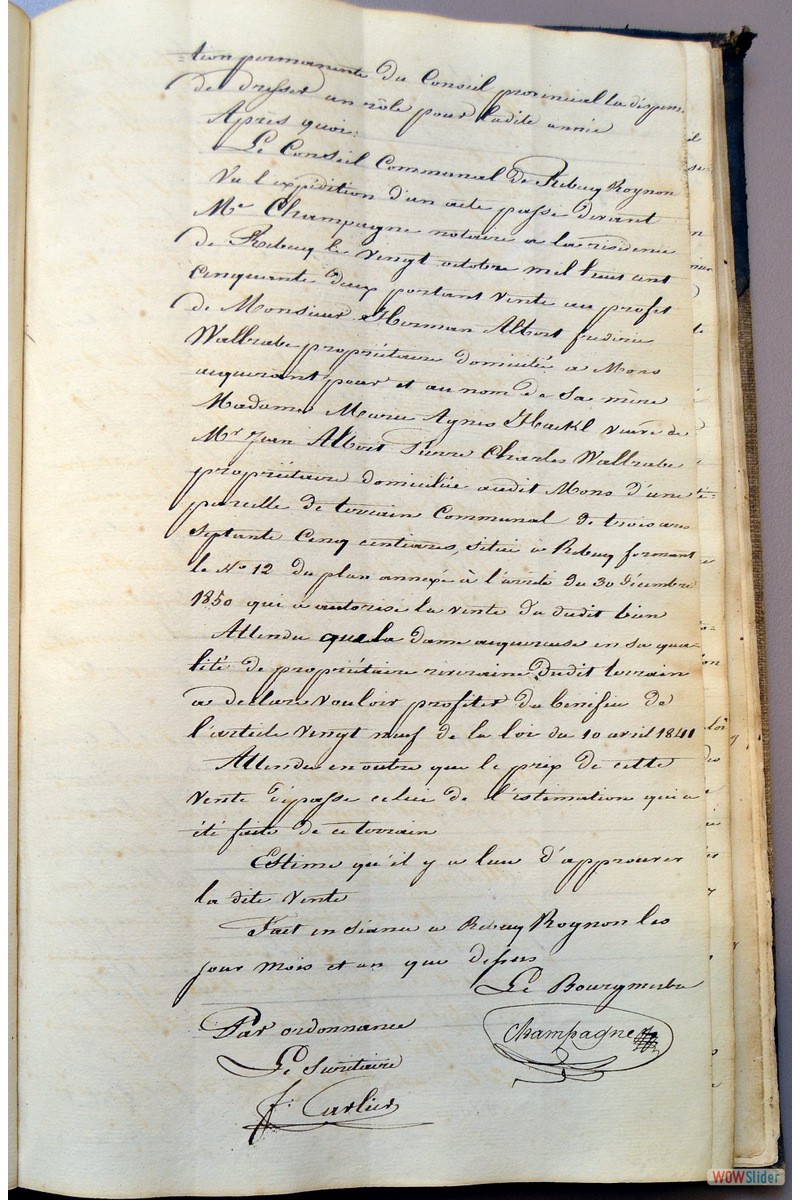 -tion permanente du Conseil provincial la dispense
de dresser un rôle pour ladite année
Après quoi:
Le Conseil Communal de Rebecq Rognon
Vu l'expédition d'un acte passé devant
Me Champagne notaire a la résidence
de Rebecq le vingt octobre mil huit cent
cinquante deux portant vente au profit
de Monsieur Herman Albert frederic
Wallrabe propriétaire domicilié a Mons
acquerant pour et au nom de sa mère
Madame Marie Agnes Haekl veuve de
Mr Jean Albert Pierre Charles Wallrabe
propriétaire domiciliée audit Mons d'une
parcelle de terrain Communal de trois ares
septante cinq centiares, située à Rebecq formant
le No 12 du plan annexé à l'arrêté du 30 décembre
1850 qui a autorisé la vente du dudit bien
Attendu que la dame acquereuse en sa qua-
lité de propriétaire riveraine dudit terrain
a déclaré vouloir profiter du bénéfice de
l'article vingt neuf de la loi du 10 avril 1841
Attendu en outre que le prix de cette
vente dépasse celui de l'estimation qui a
été faite de ce terrain
Estime qu'il y a lieu d'approuver
la dite vente
Fait en séance a Rebecq Rognon les
jour mois et an que dessus
Le Bourgmestre
Champagne
Par ordonnance
Le Secrétaire
f. Carlier
WOWSlider